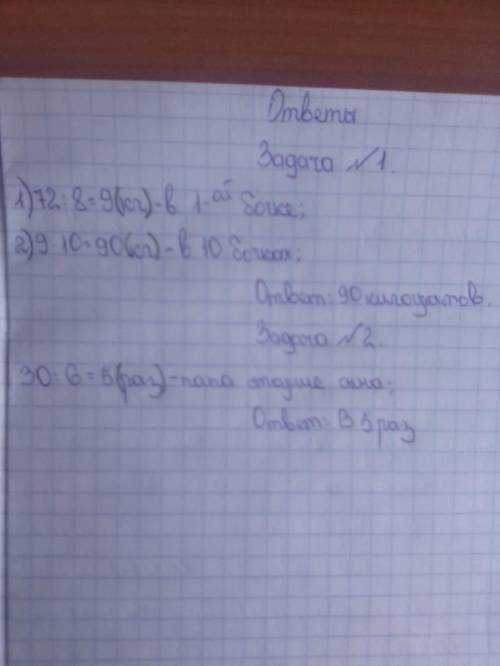 Ответы
Задача №1.
1) 72 : 8 = 9(кг) - в 1-ой бочке;
2) 9 · 10 = 90(кг) - в 10 бочках;
Ответ: 90 килограмов.
Задача №2.
30 : 6 = 5(раз) - папа старше сына;
Ответ: В 5 раз